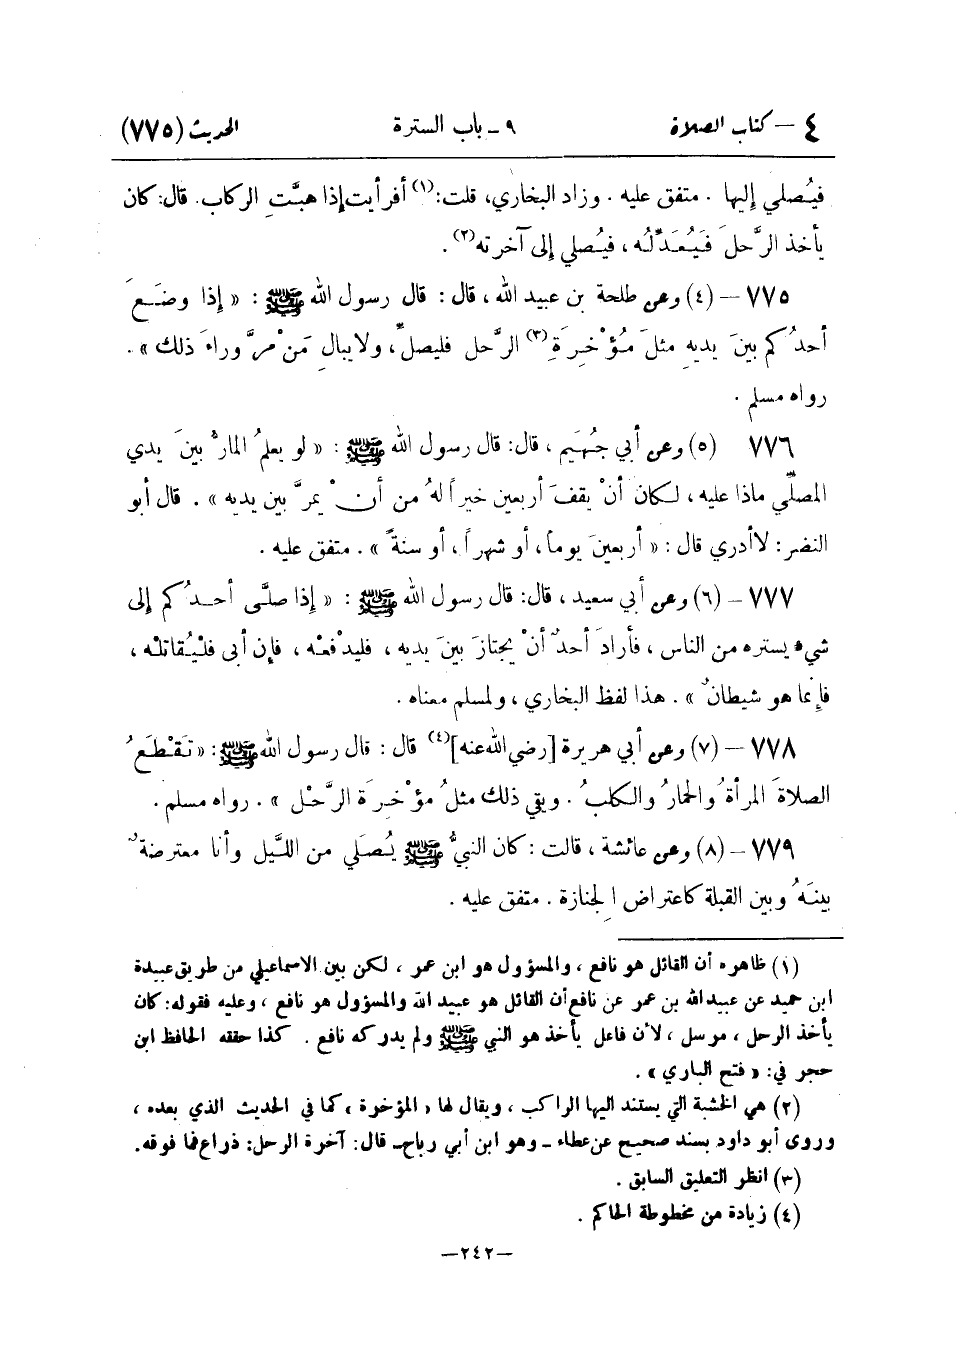 ٤ – كتاب الصلاة ٩ ـ باب السترة الحديث (٧٧٥)
فيُصلي إليها . متفق عليه . وزاد البخاري، قلت:(١) أفرأيت إذا هبَّتِ الركاب. قال: كان
يأخذ الرَّحلَ فَيُعَدِّلُه ، فيُصلي إلى آخرته(٢) .
٧٧٥ – (٤) وعن طلحة بن عبيد الله ، قال : قال رسول الله ﷺ : « إذا وضَعَ
أحدُكم بينَ يديهِ مثلَ مُؤْخِرَةِ(٣) الرَّحل فليصلِّ، ولا يبالِ مَنْ مرَّ وراءَ ذلك » .
رواه مسلم .
٧٧٦ (٥) وعن أبي جُهَيم ، قال: قال رسول الله ﷺ : « لو يعلمُ المارُّ بينَ يدي
المصلِّي ماذا عليه ، لكان أنْ يقفَ أربعين خيراً لهُ من أنْ يمرَّ بين يديه » . قال أبو
النضر : لا أدري قال : « أربعينَ يوماً، أو شهراً ، أو سنةً » . متفق عليه .
٧٧٧ – (٦) وعن أبي سعيد ، قال: قال رسول الله ﷺ : « إذا صلَّى أحدُكم إلى
شيءٍ يستره من الناس ، فأرادَ أحدٌ أنْ يجتازَ بينَ يديه ، فليدْفعْه ، فإن أبى فلْيُقاتلْه ،
فإنما هو شيطانٌ » . هذا لفظ البخاري ، ولمسلم معناه .
٧٧٨ – (٧) وعن أبي هريرة [رضي الله عنه](٤) قال : قال رسول الله ﷺ: « تَقْطَعُ
الصلاةَ المرأةُ والحمارُ والكلبُ . ويقي ذلك مثلُ مؤْخِرَةِ الرَّحْل » . رواه مسلم .
٧٧٩ – (٨) وعن عائشة ، قالت : كان النبيُّ ﷺ يُصَلي من اللَّيل وأنا معترضةٌ
بينَهُ وبين القبلة كاعتراض الجِنازة . متفق عليه .
(١) ظاهره أن القائل هو نافع ، والمسؤول هو ابن عمر ، لكن بين الاسماعيلي من طريق عبيدة
ابن حميد عن عبيد الله بن عمر عن نافع أن القائل هو عبيد الله والمسؤول هو نافع ، وعليه فقوله : كان
يأخذ الرحل ، مرسل ، لأن فاعل يأخذ هو النبي ﷺ ولم يدركه نافع . كذا حققه الحافظ ابن
حجر في : « فتح الباري » .
(٢) هي الخشبة التي يستند اليها الراكب ، ويقال لها « المؤخرة » كما في الحديث الذي بعده ،
وروى أبو داود بسند صحيح عن عطاء ـ وهو ابن أبي رباح ـ قال: آخرة الرحل: ذراع فما فوقه.
(٣) انظر التعليق السابق .
(٤) زيادة من مخطوطة الحاكم .
—٢٤٢—